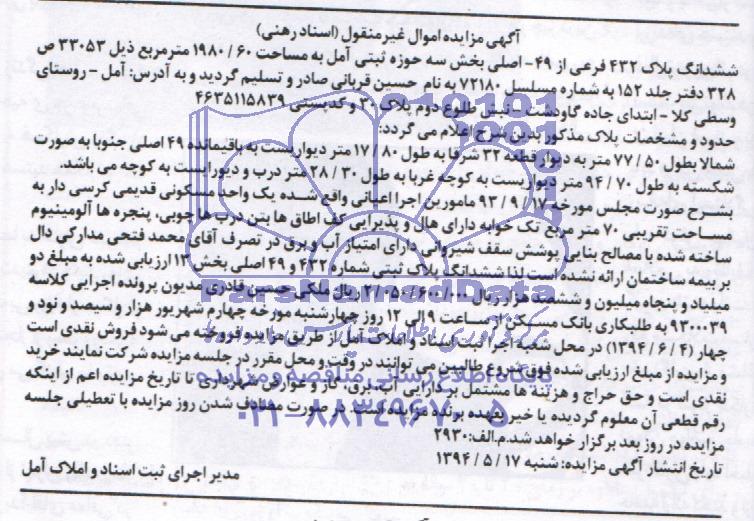 آگهی مزایده اموال غیرمنقول (اسناد رهنی)
ششدانگ پلاک ۴۳۲ فرعی از ۴۹- اصلی بخش سه حوزه ثبتی آمل به مساحت ۶۰ / ۱۹۸۰ مترمربع ذیل ۳۳۰۵۳ ص
۳۲۸ دفتر جلد ۱۵۲ به شماره مسلسل ۷۲۱۸۰ به نام حسین قربانی صادر و تسلیم گردید و به آدرس: آمل - روستای
وسطی کلا - ابتدای جاده گاودشت - نبش طلوع دوم پلاک ۳۰ و کدپستی ۴۶۳۵۱۱۵۸۳۹
حدود و مشخصات پلاک مذکور بدین شرح اعلام می گردد:
شمالا بطول ۵۰ / ۷۷ متر به دیوار قطعه ۳۲ شرقا به طول ۸۰ / ۱۷ متر دیواریست به باقیمانده ۴۹ اصلی جنوبا به صورت
شکسته به طول ۷۰ / ۹۴ متر دیواریست به کوچه غربا به طول ۳۰ / ۲۸ متر درب و دیواریست به کوچه می باشد
بشرح صورت مجلس مورخه ۱۷ / ۹ / ۹۳ مامورین اجرا اعیانی واقع شده یک واحد مسکونی قدیمی کرسی دار به
مساحت تقریبی ۷۰ متر مربع تک خوابه دارای هال و پذیرایی کف اطاق ها بتن درب ها چوبی، پنجره ها آلومینیوم
ساخته شده با مصالح بنایی پوشش سقف شیروانی دارای امتیاز آب و برق در تصرف آقای محمد فتحی مدارکی دال
بر بیمه ساختمان ارائه نشده است لذا ششدانگ پلاک ثبتی شماره ۴۳۲ و ۴۹ اصلی بخش ۱۳ ارزیابی شده به مبلغ دو
میلیاد و پنجاه میلیون و ششصد هزار ریال ۲/۰۵۰/۶۰۰/۰۰۰ ریال ملکی حسین قادری مدیون پرونده اجرایی کلاسه
۹۳۰۰۰۳۹ به طلبکاری بانک مسکن از ساعت ۹ الی ۱۲ روز چهارشنبه مورخه چهارم شهریور هزار و سیصد و نود و
چهار (۴ / ۶ / ۱۳۹۴) در محل شعبه اجرا ثبت اسناد و املاک آمل از طریق مزایده فروخته می شود فروش نقدی است
و مزایده از مبلغ ارزیابی شده فوق شروع طالبین می توانند در وقت و محل مقرر در جلسه مزایده شرکت نمایند خرید
نقدی است و حق حراج و هزینه ها مشتمل بر دارایی آب، برق، گاز و عوارض شهرداری تا تاریخ مزایده اعم از اینکه
رقم قطعی آن معلوم گردیده یا خیر بعهده برنده مزایده است. در صورت مصادف شدن روز مزایده با تعطیلی جلسه
مزایده در روز بعد برگزار خواهد شد.م.الف:۲۹۳۰
تاریخ انتشار آگهی مزایده: شنبه ۱۷ / ۵ / ۱۳۹۴
مدیر اجرای ثبت اسناد و املاک آمل
ParsNamadData
پایگاه اطلاع رسانی مناقصه و مزایده
۰۲۱-۸۸۳۴۹۶۷۰-۵